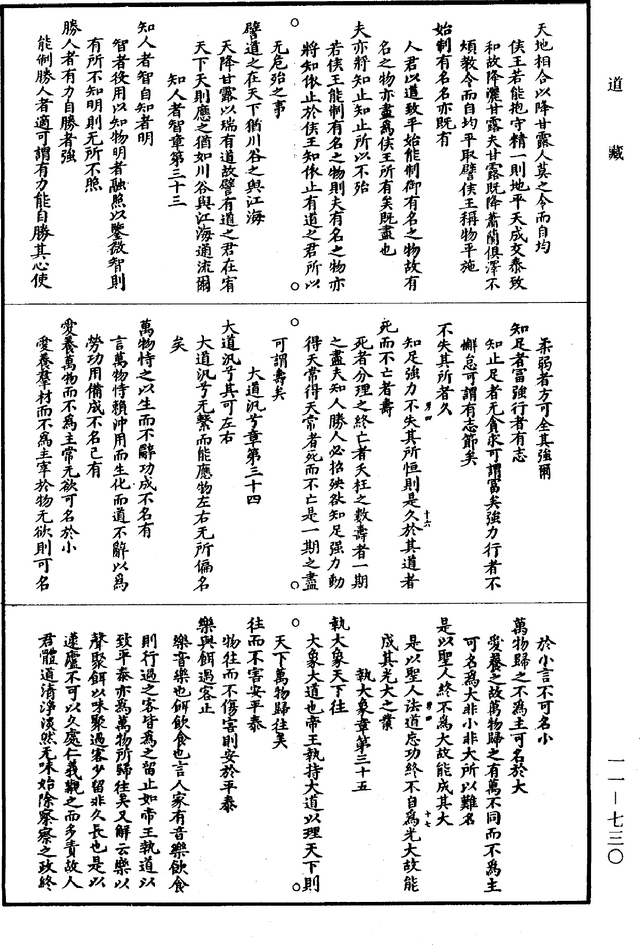 道藏
天地相合以降甘露人莫之令而自均
侯王若能抱守精一則地平天成交泰致
和故降灑甘露夫甘露既降蕭蘭俱澤不
煩教令而自均平取譬侯王稱物平施
始制有名名亦既有
人君以道致平始能制御有名之物故有
名之物亦盡為侯王所有矣既盡也
夫亦將知止知止所以不殆
若侯王能制有名之物則夫有名之物亦
將知依止於侯王知依止有道之君所以
无危殆之事
譬道之在天下猶川谷之與江海
天降甘露以瑞有道故譬有道之君在宥
天下天則應之猶如川谷與江海通流爾
知人者智章第三十三
知人者智自知者明
智者役用以知物明者融照以鑒微智則
有所不知明則无所不照
勝人者有力自勝者強
能制勝人者適可謂有力能自勝其心使
柔弱者方可全其強爾
知足者富強行者有志
知止足者无貪求可謂富矣強力行者不
懈怠可謂有志節矣
不失其所者久
知足強力不失其所恒則是久於其道者
死而不亡者壽
死者分理之終亡者夭枉之數壽者一期
之盡夫知人勝人必招殃欲知足强力動
得天常得天常者死而不亡是一期之盡
可謂壽矣
大道汎兮章第三十四
大道汎兮其可左右
大道汎兮无繫而能應物左右无所偏名
矣
萬物恃之以生而不辭功成不名有
言萬物恃賴沖用而生化而道不辭以為
勞功用備成不名己有
愛養萬物而不為主常无欲可名於小
愛養羣材而不為主宰於物无欲則可名
於小言不可名小
萬物歸之不為主可名於大
愛養之故萬物歸之有萬不同而不為主
可名為大非小非大所以難名
是以聖人終不為大故能成其大
是以聖人法道忘功終不自為光大故能
成其光大之業
執大象章第三十五
執大象天下往
大象大道也帝王執持大道以理天下則
天下萬物歸往矣
往而不害安平泰
物往而不傷害則安於平泰
樂與餌過客止
樂音樂也餌飲食也言人家有音樂飲食
則行過之客皆為之留止如帝王執道以
致平泰亦為萬物所歸往矣又解云樂以
聲聚餌以味聚過客少留非久長也是以
蘧廬不可以久處仁義觀之而多責故人
君體道清淨淡然无味始除察察之政終
一一—七三〇